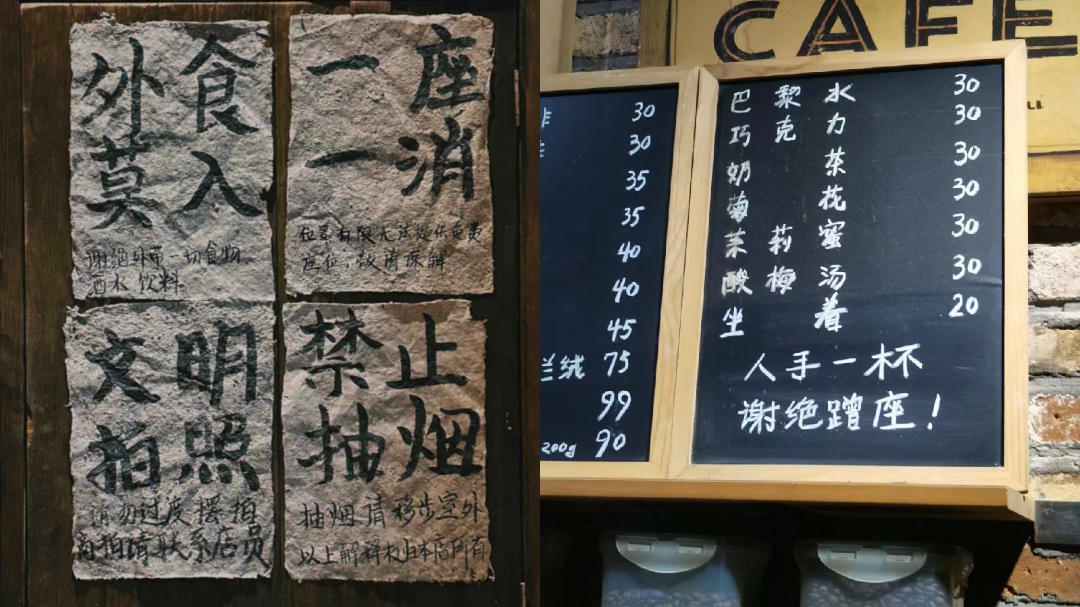 外食
莫入
谢绝外带一切食物
酒水 饮料
一座
一消
位置有限无法提供免费
座位,敬请谅解
文明
拍照
请勿过渡摆拍
商拍请联系店员
禁止
抽烟
抽烟请移步室外
以上解释权归本店所有
CAFE
30
30
35
35
40
40
45
兰绒 75
99
200g 90
巴黎水 30
巧克力 30
奶茶 30
菊花 30
茉莉蜜 30
酸梅汤 30
坐着 20
人手一杯
谢绝蹭座!